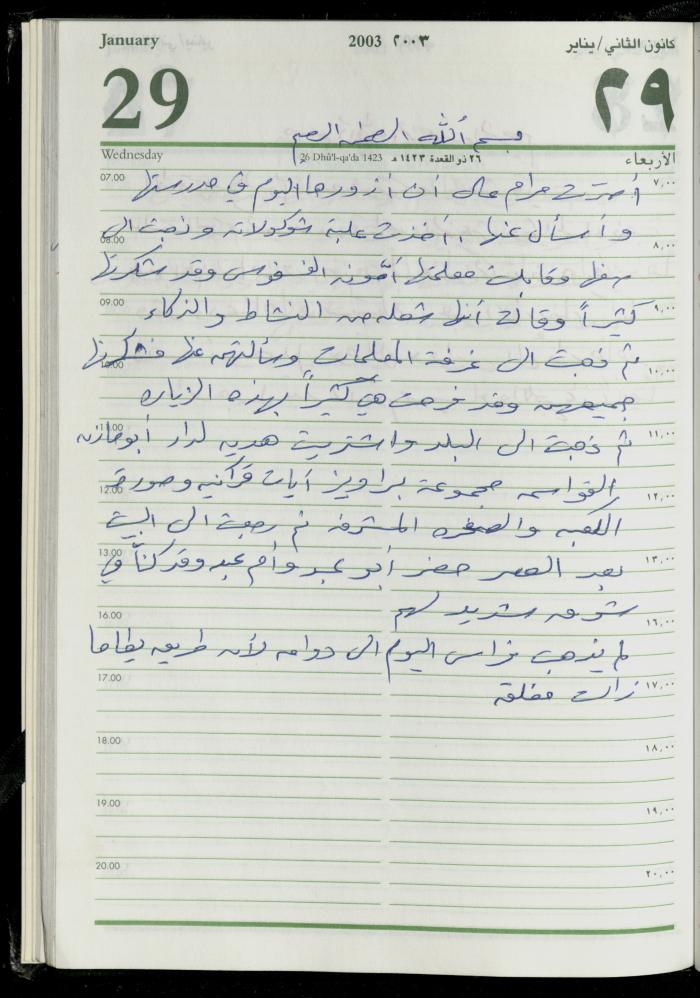 January 2003 ٢٠٠٣ كانون الثاني/يناير
29 ٢٩
بسم الله الرحمن الرحيم
Wednesday 26 Dhû'l-qa'da 1423 ٢٦ ذو القعدة ١٤٢٣ هـ الأربعاء
07.00 أصرت مرام على أن أزورها اليوم في مدرستها ٧,٠٠
وأسأل عنها .. أخذت علبة شوكولاته وذهبت الى
08.00 ٨,٠٠
صفها وقابلت معلمتها وقد شكرتها
09.00 كثيراً وقالت أنها شعله من النشاط والذكاء ٩,٠٠
ثم ذهبت الى غرفة المعلمات وسألتهم عنها فشكرنها
10.00 ١٠,٠٠
جميعهن وقد فرحت هي كثيراً بهذه الزياره
11.00 ثم ذهبت الى البلد واشتريت هديه لدار أبو مازن ١١,٠٠
القواسمه مجموعة براويز آيات قرآنيه وصورة
12.00 ١٢,٠٠
الكعبه والصخره المشرفه ثم رجعت الى البيت
13.00 بعد العصر حضر أبو عبد وأم عبد وقد كنّا في ١٣,٠٠
شوق شديد لهم
16.00 ١٦,٠٠
لم يذهب فراس اليوم الى دوامه لأن طريق يطا
17.00 ١٧,٠٠
زالت مغلقه
18.00 ١٨,٠٠
19.00 ١٩,٠٠
20.00 ٢٠,٠٠